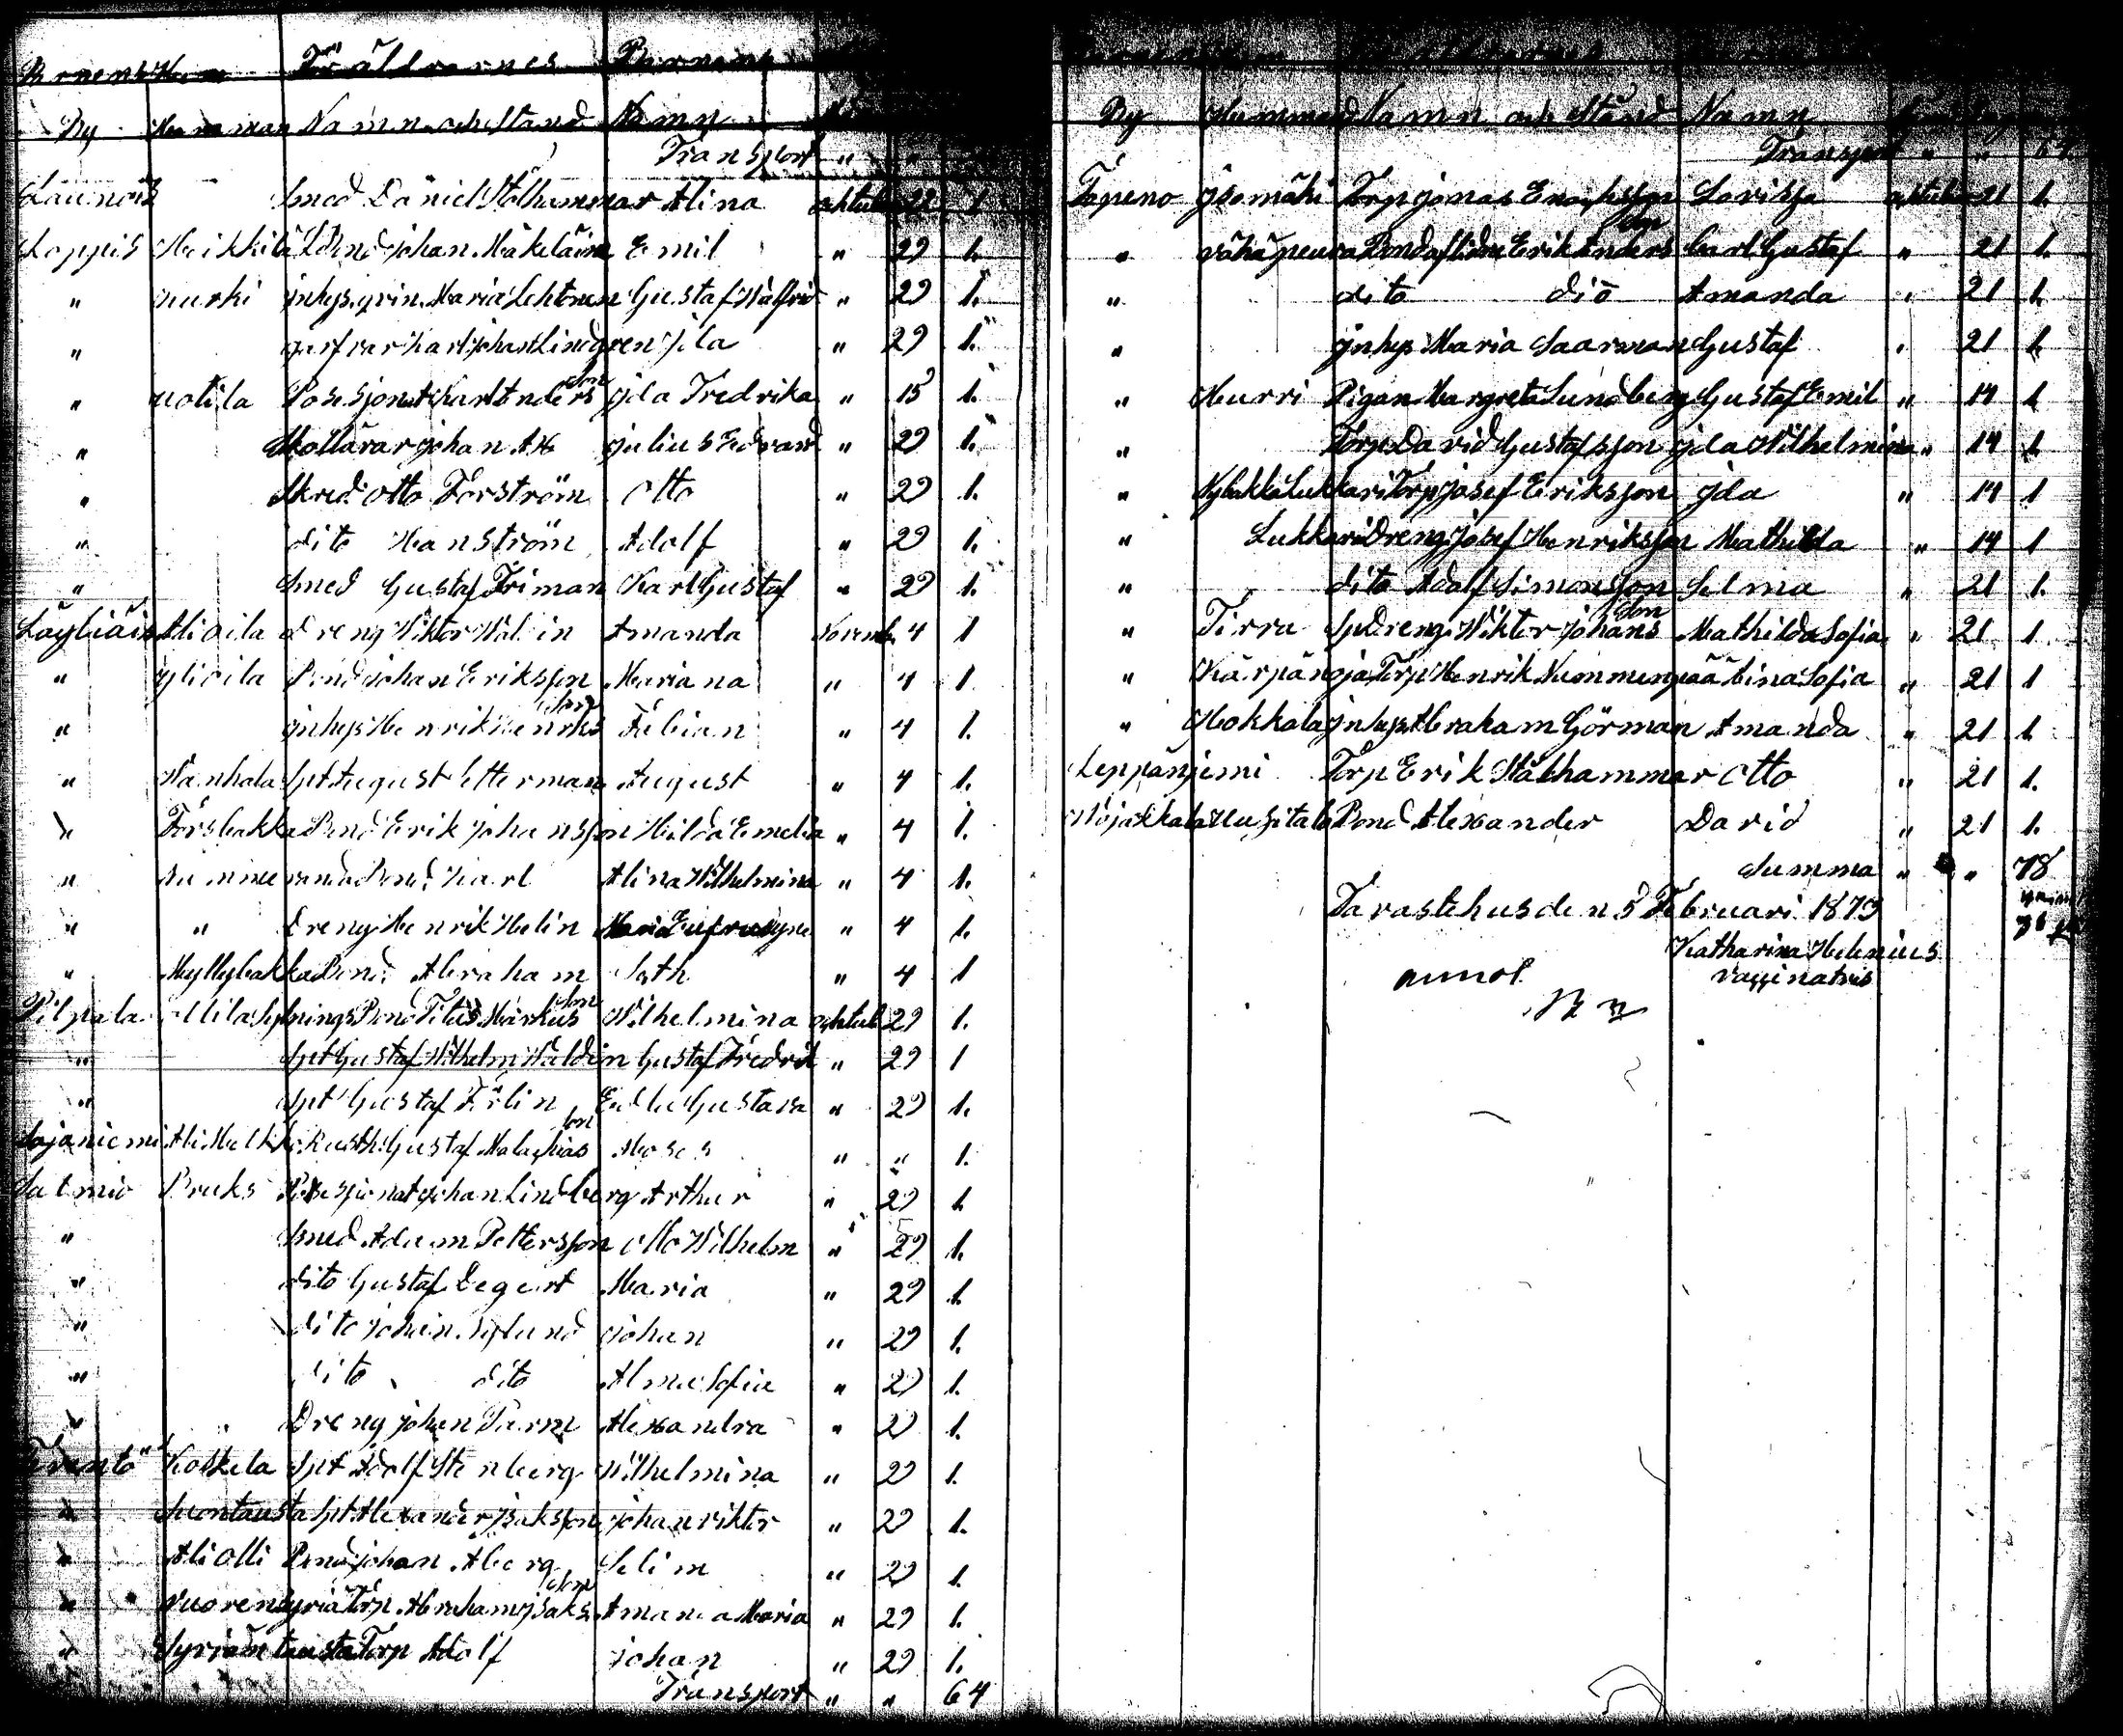 Föräldrarnes Barnens
By Hemman Namn och Stånd Namn
Transport "
Launois Smed Daniel Stålhammar Alina oktub 29 1
Loppis Heikkilä Bond Johan Mäkeläin Emil " 29 1.
" nurki jnhys.qvin. Maria Lehtonen Gustaf Walfrid " 29 1.
" garfvar Karl Johan Lindgren " 29 1.
" uotila Posesjonat Karl Anders son jda Fredrika " 15 1.
" Mollärar johan julius Edvard " 29 1.
" Skred. Otto Forström Otto " 29 1.
" dito Hanström Adolf " 29 1.
" Smed Gustaf Friman Karl Gustaf " 29 1.
Läyliäis Alioila dreng Viktor Wal in Amanda Novemb. 4 1
" ylioila Bond johan Eriksson Mariana " 4 1
" jnhys Henrik Henriks son Fabian " 4 1.
" Wanhala Spt August Etterman August " 4 1.
" Torsbakka Bond Erik johansson Hilda Emelia " 4 1.
" Bond. Karl Alina Wilhelmina " 4 1.
" " dreng Henrik Helin Maria Eufrosyne " 4 1.
" Myllybakka Bond. Abraham Seth " 4 1
Pilpala Ollila Bond Titus Markus son Wilhelmina oktub 29 1.
" Spt Gustaf Wilhelm Waldin Gustaf Fredrik " 29 1
" Spt Gustaf Förlin Gustava " 29 1.
Sajaniemi Gustaf Malachias son Moses " " 1.
Salmio Bruks Possesjonat johan Lindberg Arthur " 29 1
" Smed Adam Pettersson Otto Wilhelm " 29 1.
" dito Gustaf Degert Maria " 29 1.
" dito johan Nylund johan " 29 1.
" dito dito Alma Sofia " 29 1.
" Dreng johan Parm Alexandra " 29 1.
Koskela Spt Adolf Stenberg Wilhelmina " 29 1.
" Suontausta Spt Alexander jsaksson johan viktor " 29 1.
" Ali Olli Bond johan Aberg Selim " 29 1.
" Vuorensyrjä Torp. Abraham jsaks son Amanda Maria " 29 1.
" Syrjäntausta Torp Adolf johan " 29 1.
Transport " " 64
By Hemman Namn och Stånd Namn
Transport " " 64
Topeno jsomäki Torp jonas Enoksson Lovissa oktuber 21 1.
" vähäpeura Bondaflidne Erik Anders son Carl Gustaf " 21 1.
" dito dio Amanda " 21 1.
" jnhys Maria Saarman Gustaf " 21 1.
" Hurri Pigan Margreta Sundberg Gustaf Emil " 14 1
" Torp David Gustafsson jda Wilhelmina " 14 1
" Nybakka Lukkari Torp josef Eriksson jda " 14 1
" Lukkari Dreng josef Henriksson Mathilda " 14 1
" dito Adolf Simonsson Selma " 21 1.
" Pirra Spt Dreng Wiktor johans son Mathilda Sofia " 21 1
" Kärpänoja Torp Henrik Nummenpää Stina Sofia " 21 1
" Hokkala jnhys Abraham Görman Amanda " 21 1.
Leppäniemi Torp Erik Stålhammar Otto " 21 1.
Hojakkala Uusitalo Bond Alexander David " 21 1.
Summa " " 78
Tavastehus den 5 Februari 1873
Katharina Helenius
vaccinatris